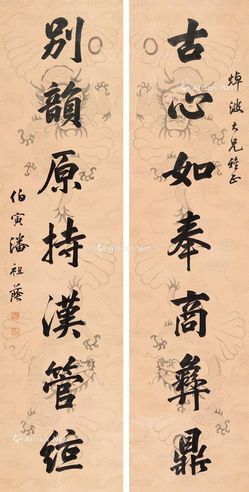 焯波大兄雅正
古心如奉高彝鼎
別韻原持漢管絃
伯寅潘祖蔭